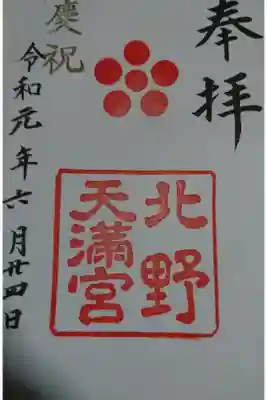 奉拝
北野
天満宮
慶祝
令和元年六月廿四日